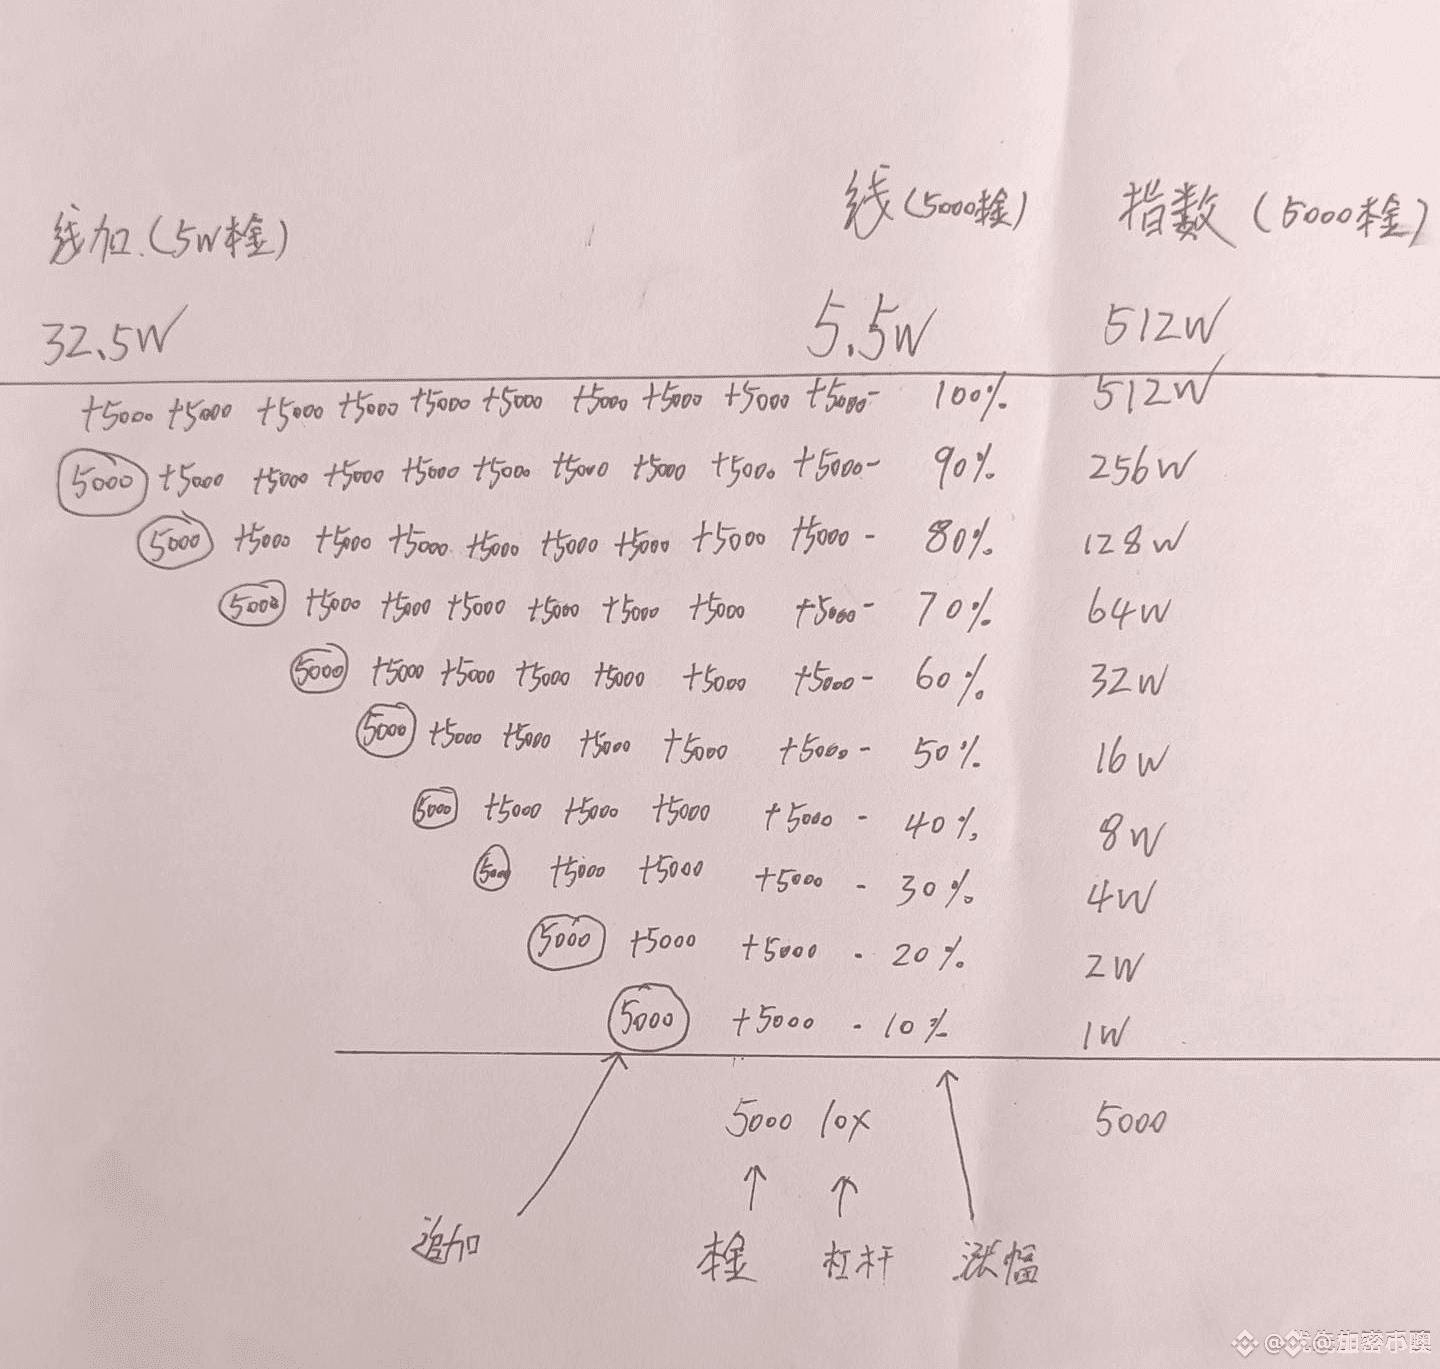 线加.(5W本金) 线(5000本金) 指数(5000本金)
32.5W 5.5W 512W
+5000 +5000 +5000 +5000 +5000 +5000 +5000 +5000 +5000 +5000- 100% 512W
5000 +5000 +5000 +5000 +5000 +5000 +5000 +5000 +5000 +5000- 90% 256W
5000 +5000 +5000 +5000 +5000 +5000 +5000 +5000 +5000- 80% 128W
5000 +5000 +5000 +5000 +5000 +5000 +5000 +5000- 70% 64W
5000 +5000 +5000 +5000 +5000 +5000 +5000- 60% 32W
5000 +5000 +5000 +5000 +5000 +5000- 50% 16W
5000 +5000 +5000 +5000 +5000- 40% 8W
5000 +5000 +5000 +5000- 30% 4W
5000 +5000 +5000- 20% 2W
5000 +5000- 10% 1W
5000 10X 5000
追加 本金 杠杆 涨幅